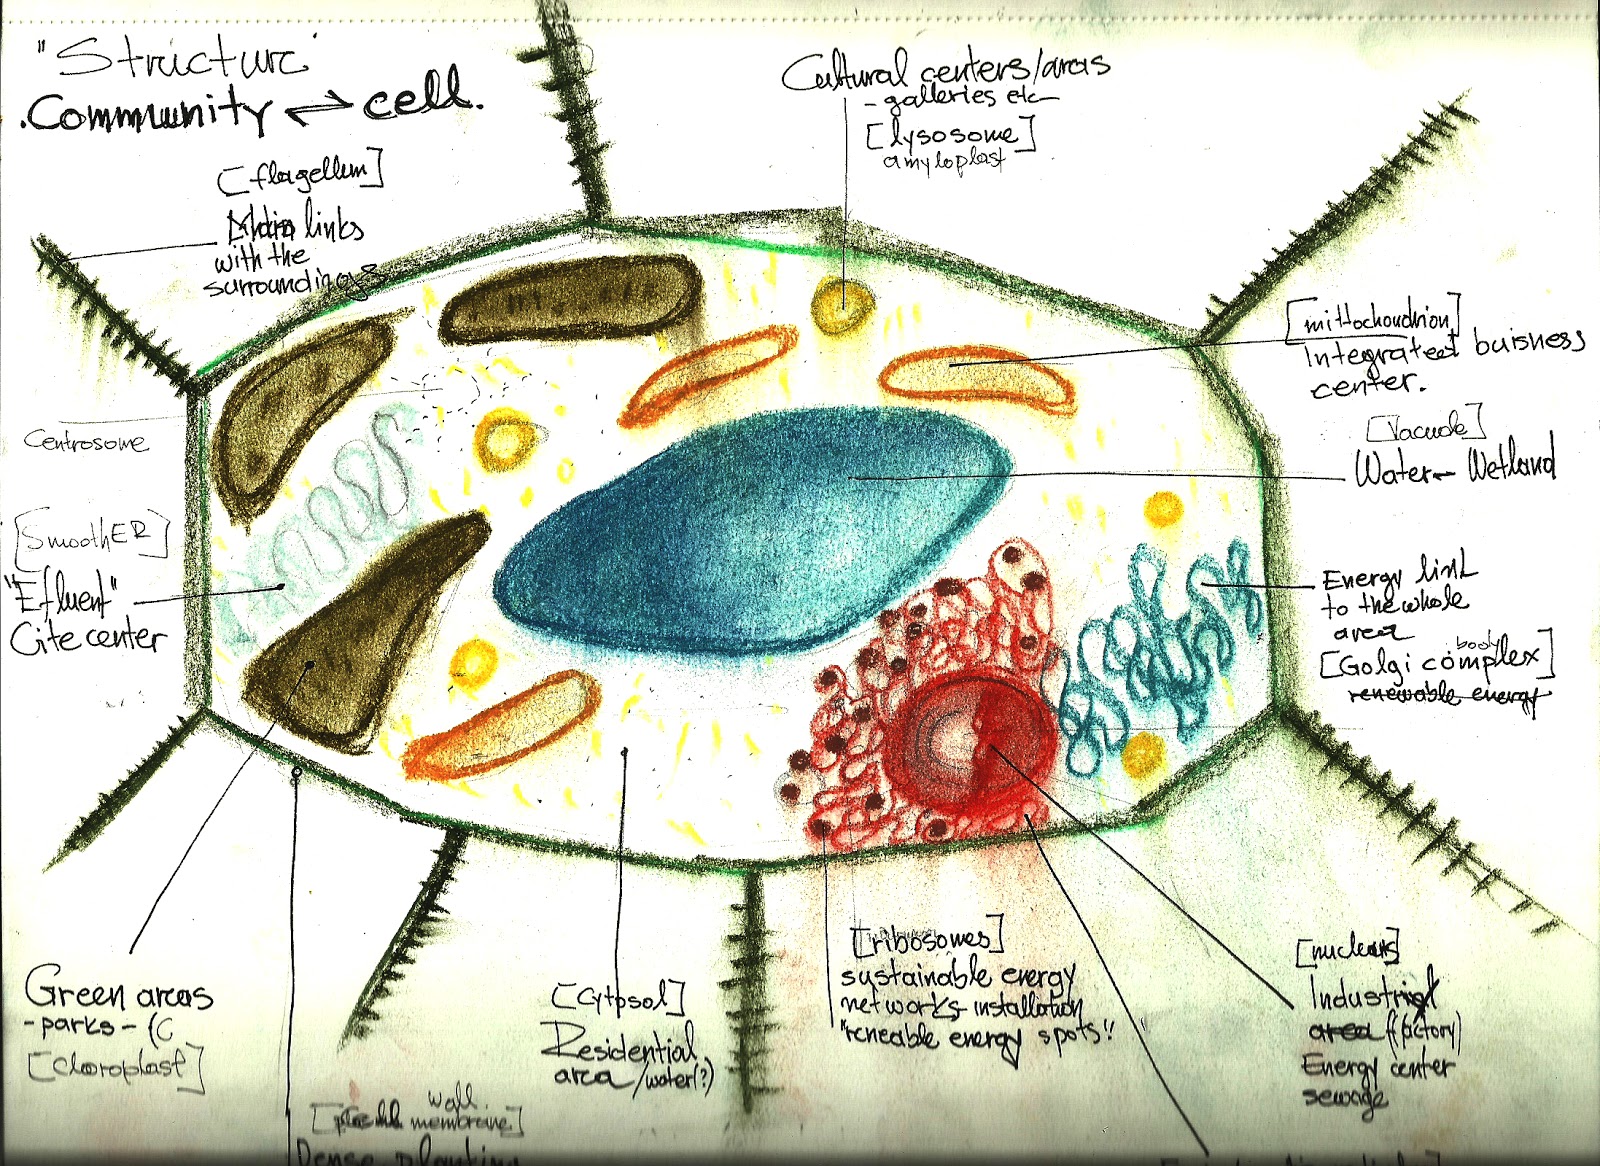 "Structure"
.Community ⇌ cell.
[flagellum]
links
with the
surroundings
Cultural centers/aras
- galleries etc
[lysosome]
amyloplast
[mittochondrion]
Integrated buisness
center.
[Vacuole]
Water - Wetland
Centrosome
[SmoothER]
"Efluent"
Cite center
Energy link
to the whole
area
body
[Golgi complex]
renewable energy
Green areas
- parks - (C
[Cloroplast]
wall
membrane]
Dense planting
[Cytosol]
Residential
area /water(?)
[ribosomes]
sustainable energy
networks - installation
"reneable energy spots"
[nucleus]
Industrial
area (factory)
Energy center
sewage